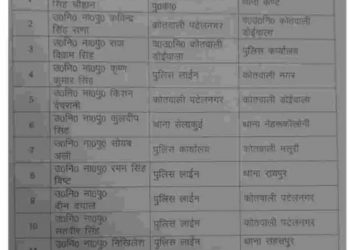 सिंह चौहान पु०का० थाना कैण्ट
2 उ०नि० ना०पु० रविन्द्र सिंह राणा कोतवाली पटेलनगर व०उ०नि० कोतवाली डोईवाला
3 उ०नि० ना०पु० राज विक्रम सिंह व०उ०नि० कोतवाली डोईवाला पुलिस कार्यालय
4 उ०नि० ना०पु० कृष्ण कुमार सिंह पुलिस लाईन कोतवाली नगर
5 उ०नि० ना०पु० किशन देवरानी कोतवाली पटेलनगर कोतवाली डोईवाला
6 उ०नि० ना०पु० कुलदीप सिंह थाना सेलाकुई थाना नेहरूकॉलोनी
7 उ०नि० ना०पु० शोयब अली पुलिस कार्यालय कोतवाली मसूरी
8 उ०नि० ना०पु० रमन सिंह बिष्ट पुलिस लाईन थाना रायपुर
9 उ०नि० ना०पु० दीन दयाल पुलिस लाईन कोतवाली पटेलनगर
10 उ०नि० ना०पु० सतवीर सिंह पुलिस लाईन कोतवाली पटेलनगर
उ०नि० ना०पु० निखिलेश पुलिस लाईन थाना सहसपुर